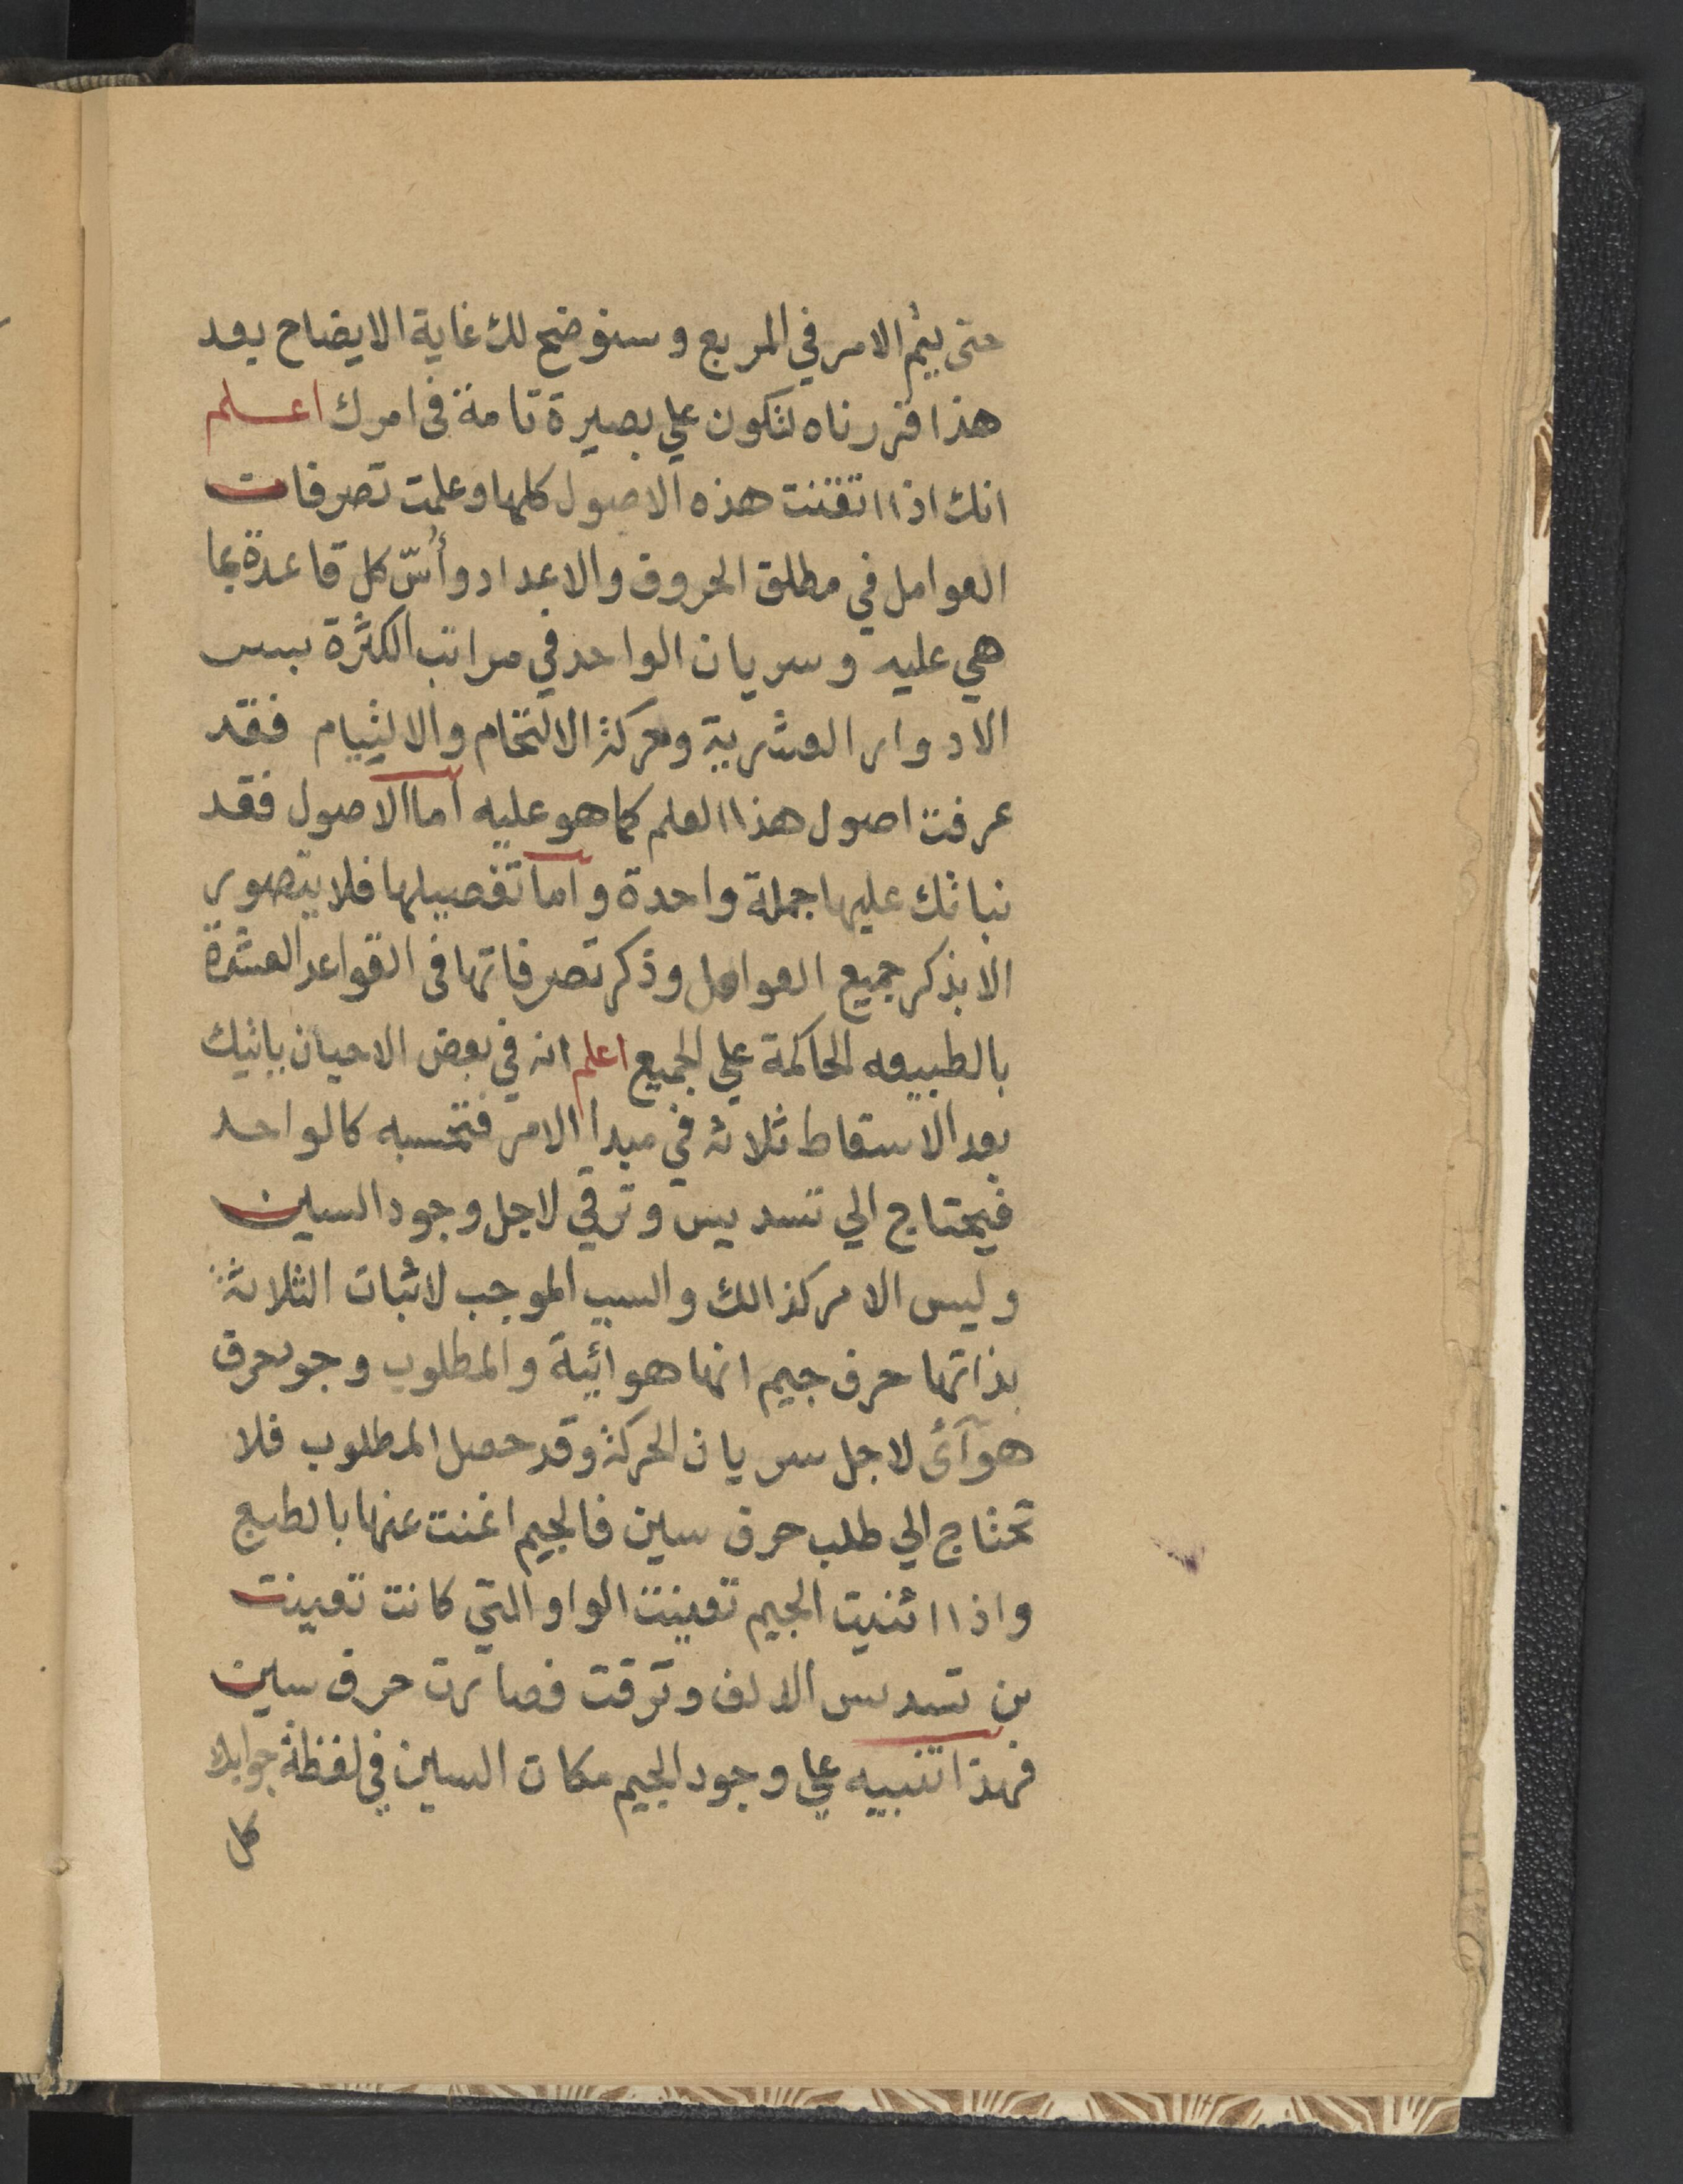 حتى يتم الامر في المربع وسنوضح لك غاية الايضاح بعد
هذا قررناه لتكون علي بصيرة تامة في امرك اعلم
انك اذا اتقنت هذه الاصول كلها وعلمت تصرفات
العوامل في مطلق الحروف والاعداد وأسّ كل قاعدة بما
هي عليه وسريان الواحد في مراتب الكثرة بسبب
الادوار العشرية وحركة الالتحام والالتيام فقد
عرفت اصول هذا العلم كما هو عليه اما الاصول فقد
نباتك عليها جملة واحدة واما تفصيلها فلا يتصور
الا بذكر جميع العوامل وذكر تصرفاتها في القواعد العشرة
بالطبيعه الحاكمة علي الجميع اعلم انه في بعض الاحيان ياتيك
بعد الاسقاط ثلاثة في مبدا الامر فتحسبه كالواحد
فيحتاج الي تسديس وترقي لاجل وجود السين
وليس الامر كذالك والسبب الموجب لاثبات الثلاثة
بذاتها حرف جيم انها هوائية والمطلوب وجو حرف
هوآئ لاجل سريان الحركة وقد حصل المطلوب فلا
تحتاج الي طلب حرف سين فالجيم اغنت عنها بالطبع
واذا اثنيت الجيم تعينت الواو التي كانت تعينت
من تسديس الالف وترقت فصارت حرف سين
فهذا تنبيه علي وجود الجيم مكان السين في لفظة جوابك
كل